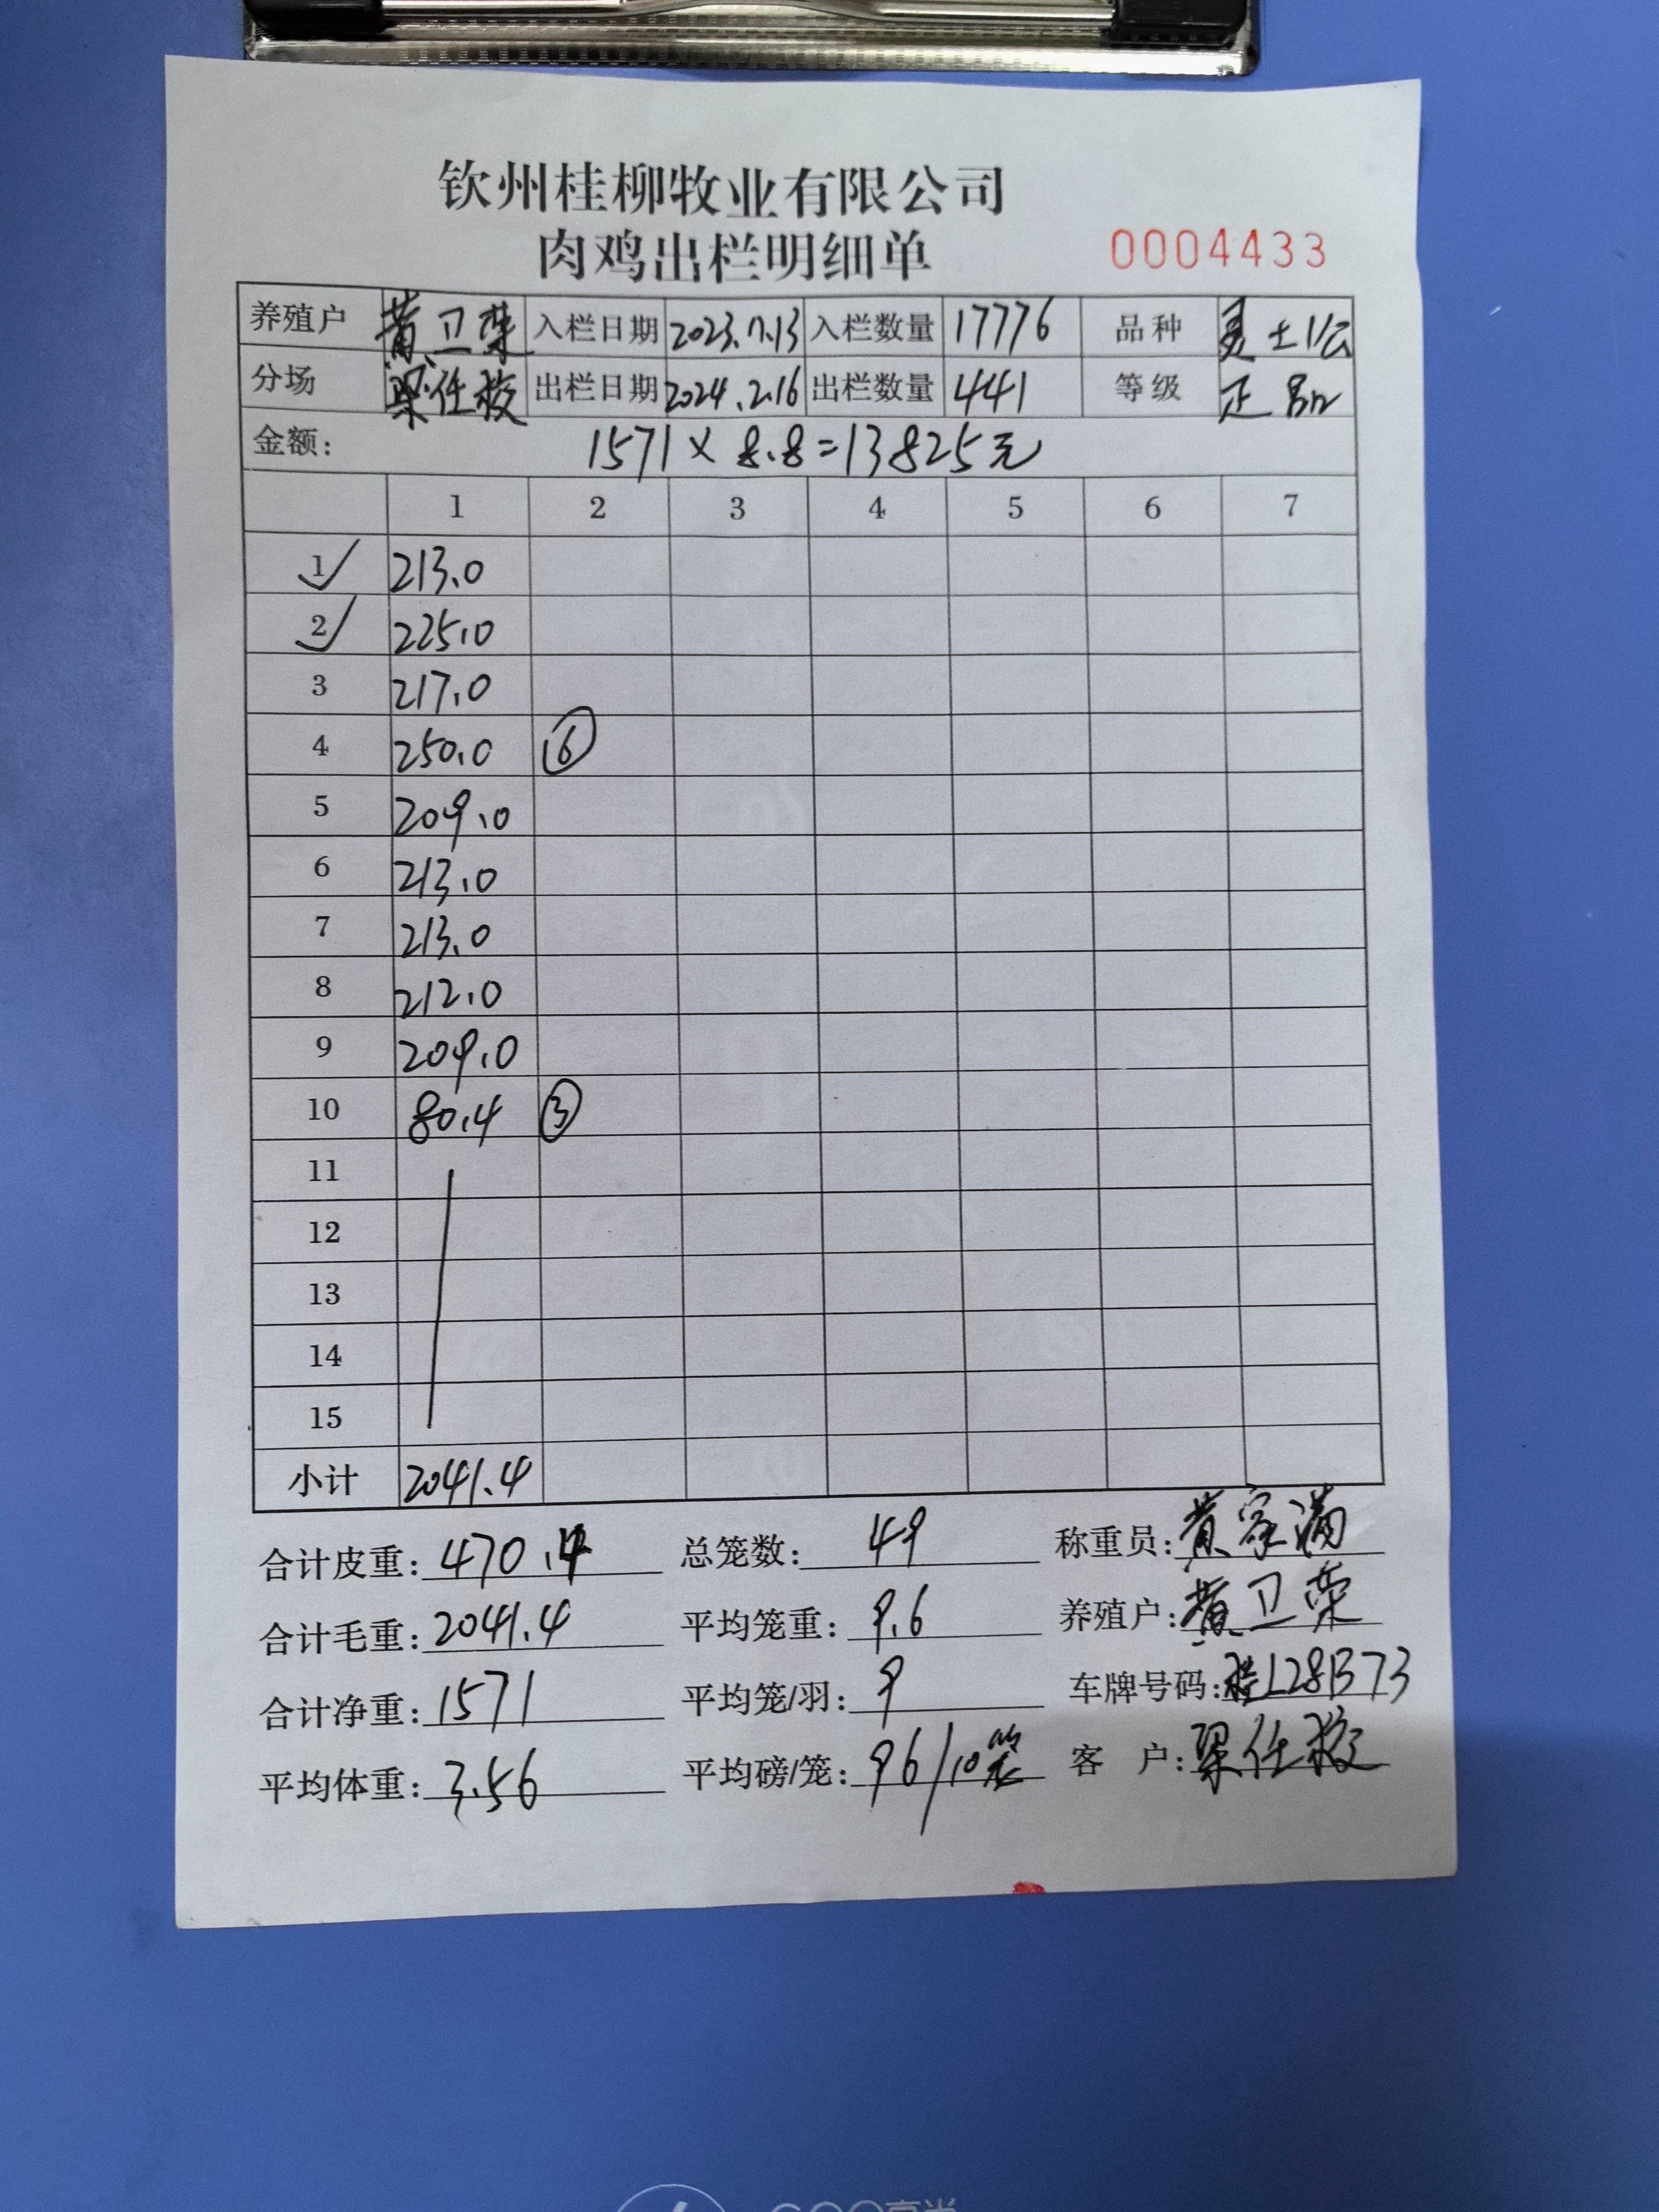 钦州桂柳牧业有限公司
肉鸡出栏明细单 0004433
养殖户 黄卫荣 入栏日期 2023.7.13 入栏数量 17776 品种 土1公
分场 梁任 出栏日期 2024.2.16 出栏数量 441 等级 正品
金额： 1571 × 8.8=13825元
1 2 3 4 5 6 7
1 213.0
2 225.0
3 217.0
4 250.0 ⑥
5 209.0
6 213.0
7 213.0
8 212.0
9 209.0
10 80.4 ③
11
12
13
14
15
小计 2041.4
合计皮重：470.4 总笼数：49 称重员：黄家满
合计毛重：2041.4 平均笼重：9.6 养殖户：黄卫荣
合计净重：1571 平均笼/羽：9 车牌号码：桂L28B73
平均体重：3.56 平均磅/笼：96/10笼 客 户：梁任